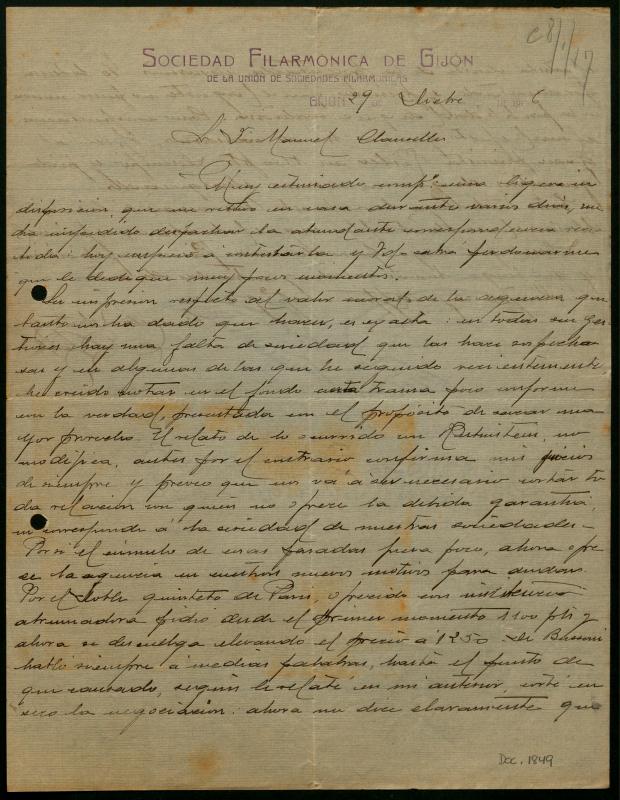 C 8/1/17
SOCIEDAD FILARMÓNICA DE GIJÓN
DE LA UNIÓN DE SOCIEDADES FILARMÓNICAS
GIJON 29 DE Dicbre DE 1916
Sr. D. Manuel Clausells
Muy estimado amigo: una ligera in
disposición, que me retuvo en casa durante varios días, me
ha impedido despachar la abundante correspondencia re
hoy empiezo a contestarla y Vd. sabrá perdonarme
que le dedique muy pocos momentos.
Su impresión respecto al valor moral de la agencia que
tanto nos ha dado que hacer, es exacta: en todas sus ges
tiones hay una falta de seriedad que las hace sospecho
sas y en algunas de las que he seguido recientemente,
he creido notar en el fondo cierta trama poco conforme
con la verdad, presentada con el propósito de sacar ma
yor provecho. El relato de lo ocurrido con Rubinstein, no
modifica, antes por el contrario confirma mis juicios
de siempre y preveo que nos va á ser necesario cortar to
da relación con quien no ofrece la debida garantía,
ni corresponde á la seriedad de nuestras sociedades.—
Por si el cúmulo de cosas pasadas fuera poco, ahora ofre
ce la agencia en cuestion nuevos motivos para dudar.
Por el Doble quinteto de Paris, ofrecido con insistencia
atrumadora pidió desde el primer momento 1100 pts y
ahora se descuelga elevando el precio á 1250. De Bussoni
habló siempre á medias palabras, hasta el punto de
que cansado, según le relaté en mi anterior, corté en
seco la negociación: ahora me dice claramente que
Doc. 1849